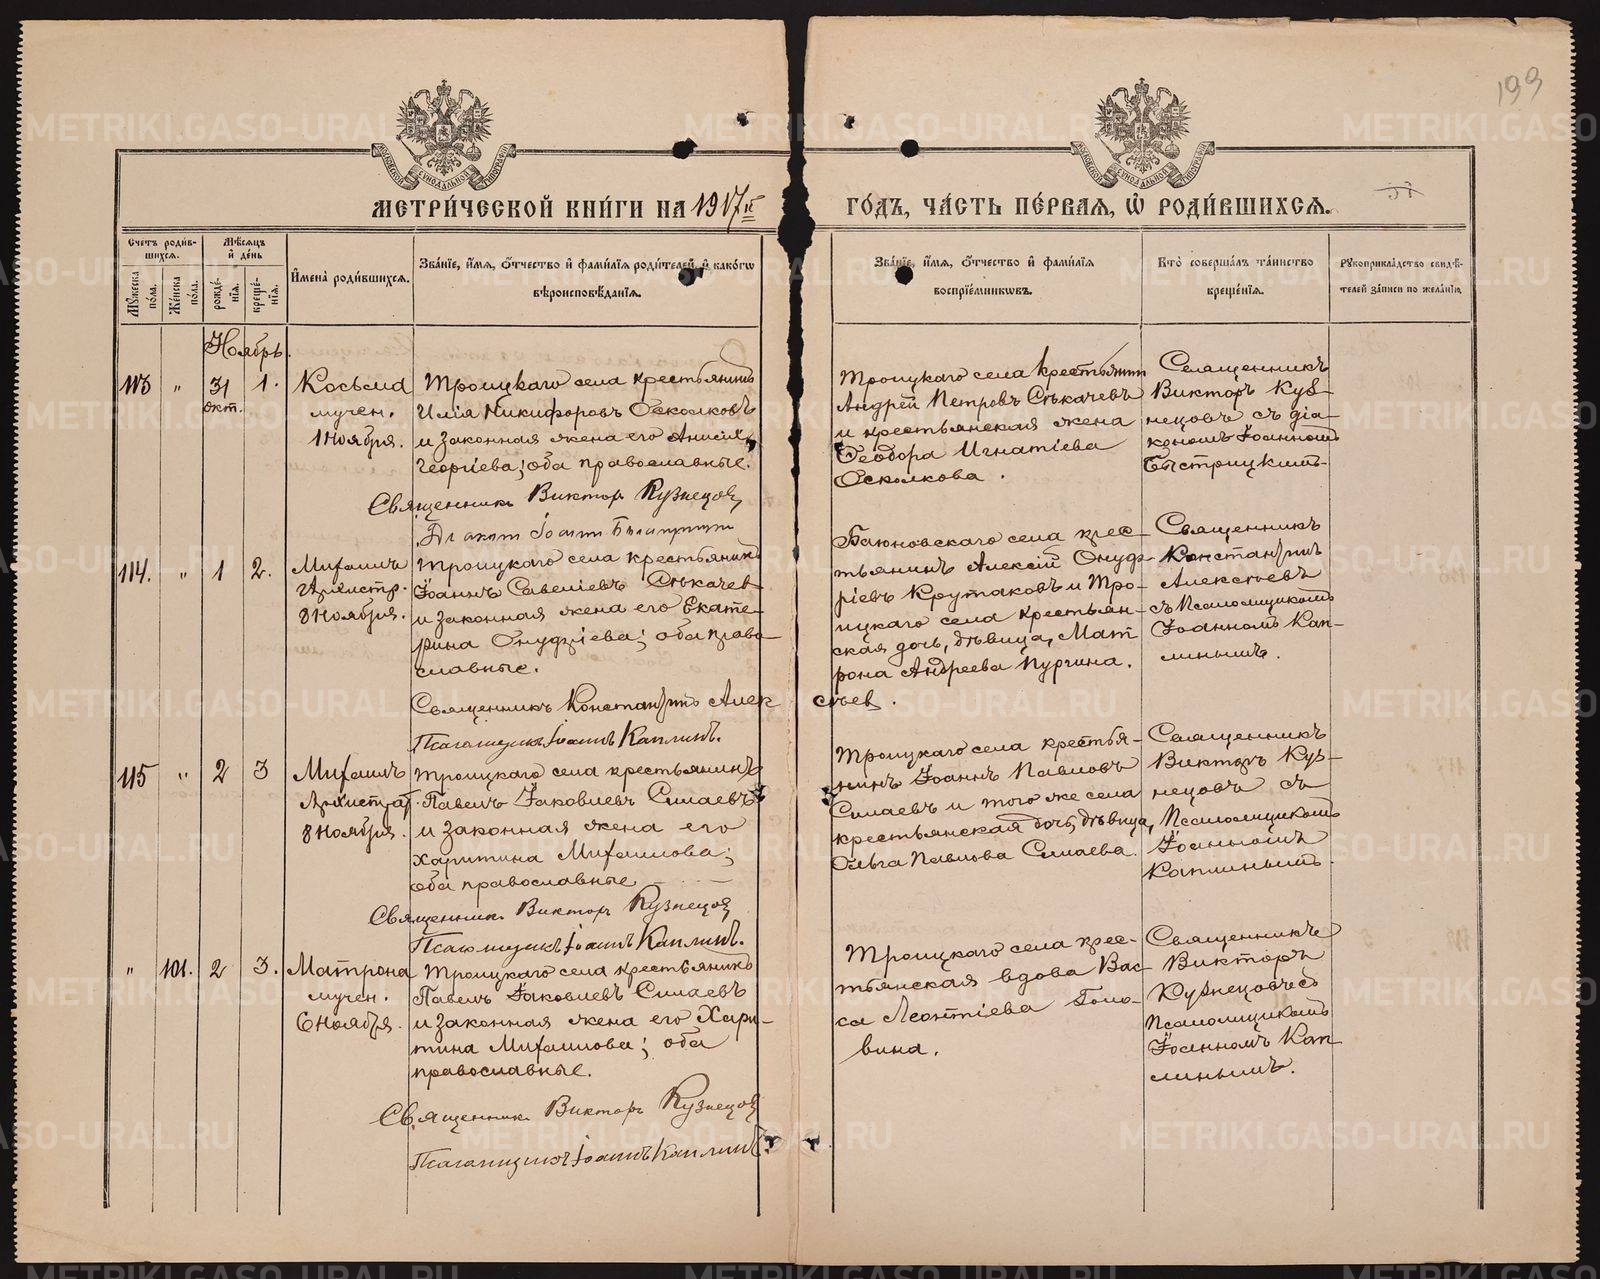 199
МЕТРИ́ЧЕСКОЙ КНИ́ГИ НА 1917й ГО́ДЪ, ЧА́СТЬ ПЕ́РВАЯ, Ѡ РОДИ́ВШИХСЯ.
51
Счетъ роди́вшихся.
Му́жеска по́ла.
Же́нска по́ла.
Мѣ́сяцъ и де́нь
рожде́нія.
креще́нія.
Имена̀ роди́вшихся.
Зва́ніе, и́мя, о́тчество и фами́лія роди́телей, и како́гѡ
вѣроисповѣ́данія.
Зва́ніе, и́мя, о́тчество и фами́лія
воспріе́мникѡвъ.
Кто̀ соверша́лъ та́инство
креще́нія.
Рукоприкла́дство свидѣ́-
телей за́писи по жела́нію.
Ноябрь.
113 " 31 окт. 1.
Косьма
мучен.
1 Ноября.
Троицкаго села крестьянинъ
Илія Никифоровъ Осколковъ
и законная жена его Анисія
Георгіева; оба православные.
Священник Виктор Кузнецов
Троицкаго села крестьянин
Андрей Петровъ Сѣкачевъ
и крестьянская жена
Ѳеодора Игнатіева
Осколкова.
Священникъ
Викторъ Куз-
нецовъ съ діа-
кономъ Іоанномъ
Быстрицкимъ
114. " 1 2.
Михаилъ
Архистр.
8 Ноября.
Троицкаго села крестьянинъ
Іоаннъ Савеліевъ Сѣкачевъ
и законная жена его Екате-
рина Онуфріева; оба право-
славные.
Священникъ Константинъ Алексѣев.
Псаломщикъ Іоаннъ Каплинъ.
Баюновскаго села крес-
тьянинъ Алексій Онуф-
ріевъ Крутаковъ и Тро-
ицкаго села крестьян-
ская дочь, дѣвица, Мат
рона Андреева Пургина.
Священникъ
Константинъ
Алексѣевъ
съ Псаломщикомъ
Іоанномъ Кап-
линымъ.
115 " 2 3
Михаилъ
Архистрат.
8 Ноября.
Троицкаго села крестьянинъ
Павелъ Іаковлевъ Силаевъ
и законная жена его
Харитина Михаилова;
оба православные
Священник Виктор Кузнецов
Псаломщикъ Іоаннъ Каплинъ.
Троицкаго села крестья-
нинъ Іоаннъ Павловъ
Силаевъ и того же села
крестьянская дочь, дѣвица,
Ольга Павлова Силаева.
Священникъ
Викторъ Куз-
нецовъ съ
Псаломщикомъ
Іоанномъ
Каплинымъ.
" 101. 2 3.
Матрона
мучен.
6 Ноября.
Троицкаго села крестьянинъ
Павелъ Іаковлевъ Силаевъ
и законная жена его Хари-
тина Михаилова; оба
православные.
Священник Виктор Кузнецов
Псаломщикъ Іоаннъ Каплинъ.
Троицкаго села крес-
тьянская вдова Вас-
са Леонтіева Голо-
вина.
Священникъ
Викторъ
Кузнецовъ съ
Псаломщикомъ
Іоанномъ Кап
линымъ.
METRIKI.GASO-URAL.RU